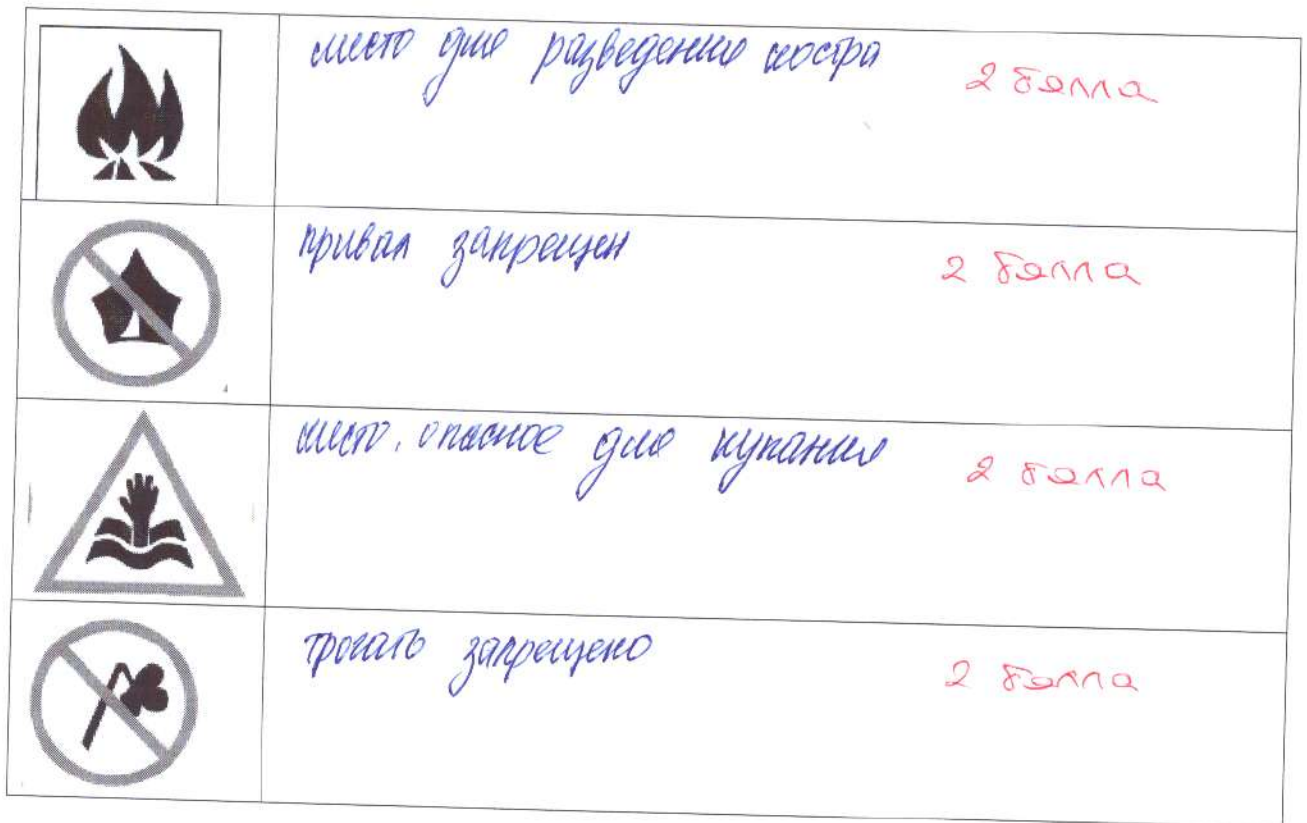 место для разведения костра 2 балла
привал запрещен 2 балла
место, опасное для купания 2 балла
трогать запрещено 2 балла